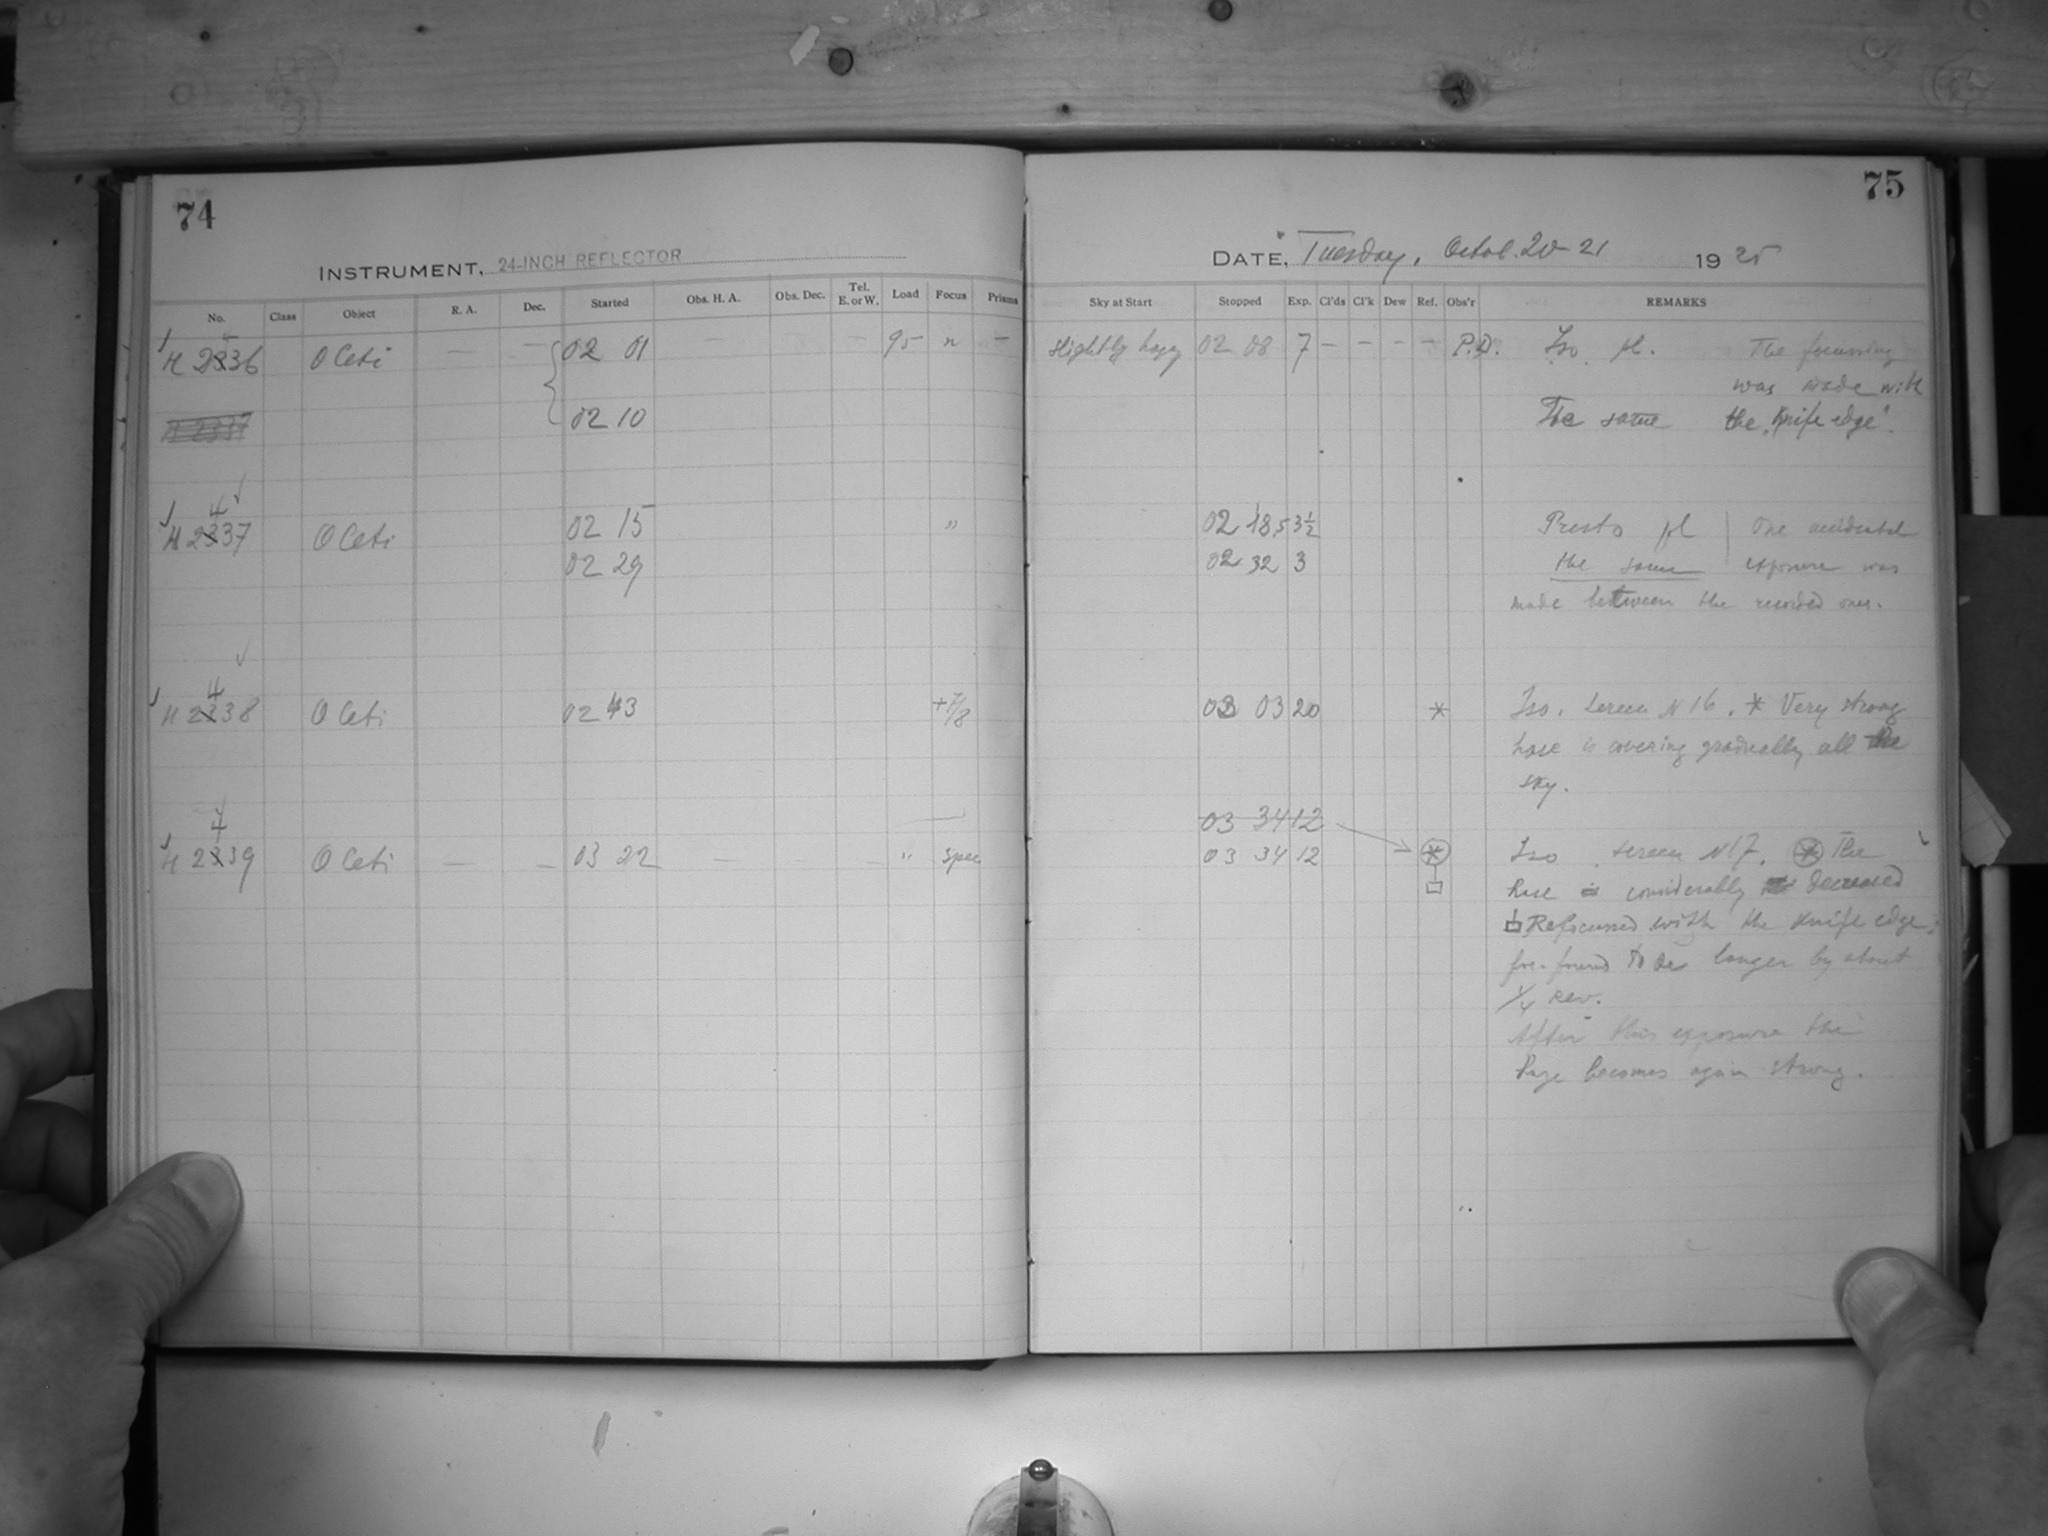 74
INSTRUMENT, 24-INCH REFLECTOR
No. Class Object R. A. Dec. Started Obs. H. A. Obs. Dec. Tel. E. or W. Load Focus Prisms
4
H 2336 O Ceti — — 02 01 — — 95 n —
02 10
4
H 2337 O Ceti 02 15 "
02 29
4
H 2338 O Ceti 02 43 +7/8
4
H 2339 O Ceti — — 03 22 — " spec
75
DATE, Tuesday, Octob. 20-21 1925
Sky at Start Stopped Exp. Cl'ds Cl'k Dew Ref. Obs'r REMARKS
Slightly hazy 02 08 7 — — — — P.D. Iso pl. The focussing
was made with
The same the "knife edge".
02 18,5 3½ Presto pl One accidental
02 32 3 the same exposure was
made between the recorded ones.
03 03 20 * Iso. Screen N 16. * Very strong
haze is covering gradually all the
sky.
03 34 12
03 34 12 * Iso screen N 17. * The
haze considerably decreased
Refocussed with the knife edge;
foc. found to be longer by about
1/4 rev.
After this exposure the
haze becomes again strong.